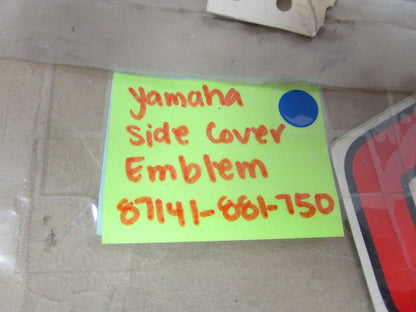 yamaha
Side Cover
Emblem
87141-881-750